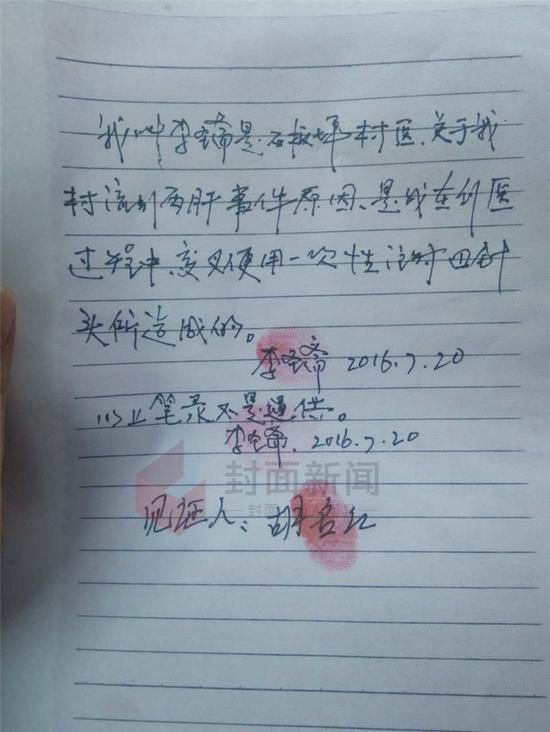 我叫李圣斋是石板坪村医.关于我
村流行丙肝事件原因、是我在行医
过程中、交叉使用一次性注射四针
头所造成的。
李圣斋 2016.7.20
以上笔录不是逼供。
李圣斋. 2016.7.20
封面新闻
见证人:胡